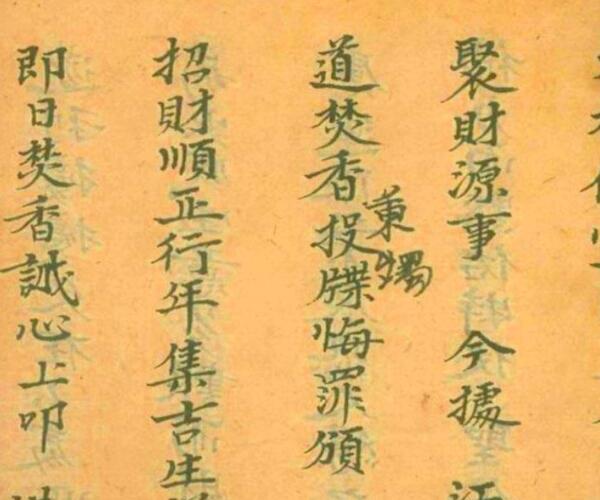 聚財源事 今據
道焚香投牒悔罪頒
秉燭
招財順正行年集吉生
即日焚香誠心上叩